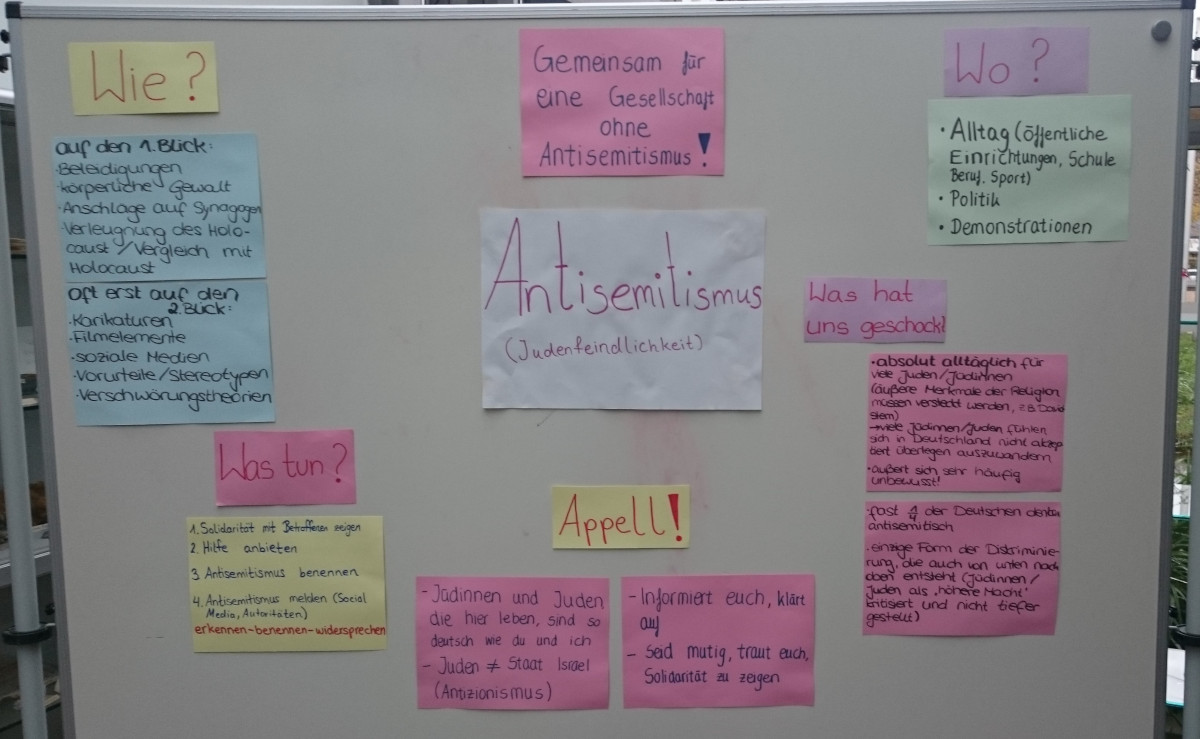 Wie?
auf den 1. Blick:
·Beleidigungen
·körperliche Gewalt
·Anschläge auf Synagogen
·Verleugnung des Holo-
caust / Vergleich mit
Holocaust
oft erst auf den
2. Blick:
·Karikaturen
·Filmelemente
·soziale Medien
·Vorurteile/Stereotypen
·Verschwörungstheorien
Was tun?
1. Solidarität mit Betroffenen zeigen
2. Hilfe anbieten
3 Antisemitismus benennen
4. Antisemitismus melden (Social
Media, Autoritäten)
erkennen-benennen-widersprechen
Gemeinsam für
eine Gesellschaft
ohne
Antisemitismus!
Antisemitismus
(Judenfeindlichkeit)
Appell!
- Jüdinnen und Juden
die hier leben, sind so
deutsch wie du und ich
- Juden ≠ Staat Israel
(Antizionismus)
- Informiert euch, klärt
auf
- Seid mutig, traut euch,
Solidarität zu zeigen
Wo?
• Alltag (öffentliche
Einrichtungen, Schule
Beruf, Sport)
• Politik
• Demonstrationen
Was hat
uns geschockt
·absolut alltäglich für
viele Juden/Jüdinnen
(äußere Merkmale der Religion
müssen versteckt werden, z.B. David
stern)
→viele Jüdinnen/Juden fühlen
sich in Deutschland nicht akzep
tiert überlegen auszuwandern
·äußert sich sehr häufig
unbewusst!
·fast 1/4 der Deutschen denken
antisemitisch
·einzige Form der Diskriminie-
rung, die auch von unten nach
oben entsteht (Jüdinnen/
Juden als „höhere Macht"
kritisiert und nicht tiefer
gestellt)